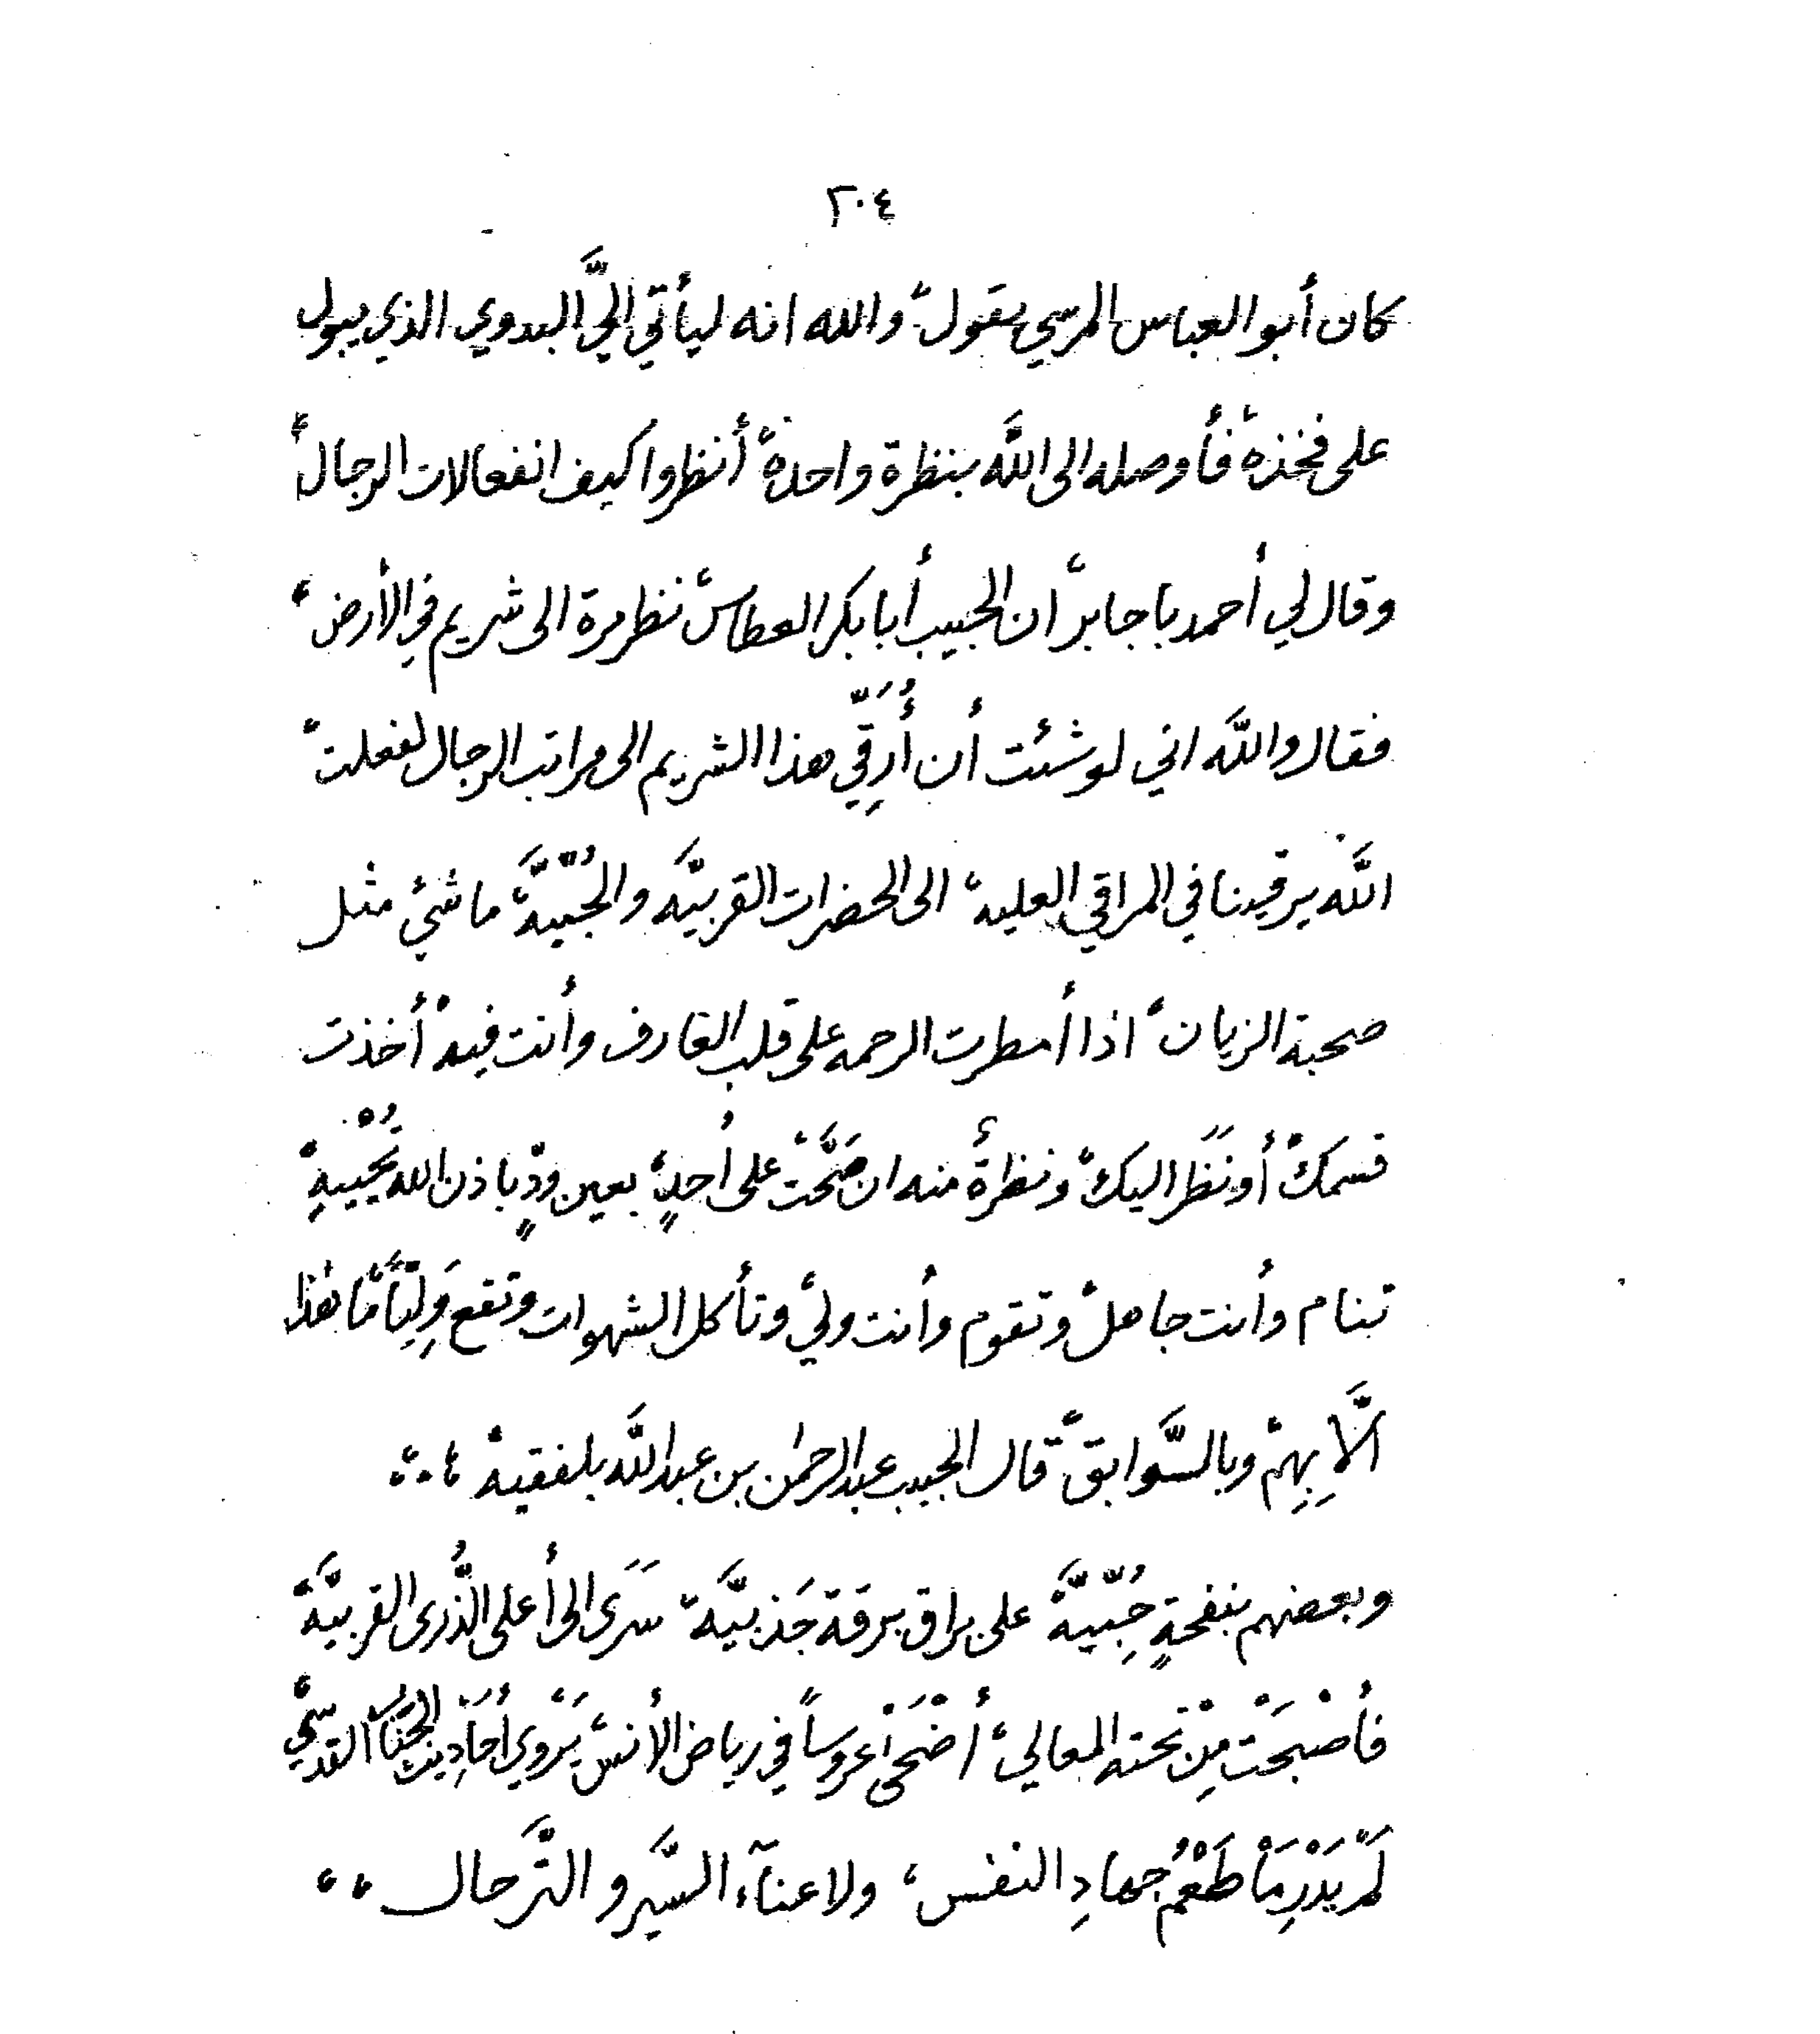 ٢٠٤
كان أبو العباس المرسي يقول، والله انه ليأتي اليَّ البدوي الذي يبول
على فخذه، فأوصله الى اللَّه بنظرة واحدة، أنظروا كيف انفعالات الرجال،
وقال لي أحمد باجابر، ان الحبيب أبابكر العطاس، نظر مرة الى شريم في الأرض،
فقال واللَّه اني لو شئت أن أُرَقِّي هذا الشريم الى مراتب الرجال لفعلت،
اللَّه يرقينا في المراقي العليه، الى الحضرات القربيَّه والحُبّيَّه، ما شيْ مثل
صحبة الزيان، اذا أمطرت الرحمه على قلب العارف وأنت فيه، أخذت
قسمك، أو نَظَر اليك، ونظرةٌ منه ان صَحَّت على أحدٍ، بعين ودٍّ باذن الله تُحْييهِ،
تنام وأنت جاهل، وتقوم وأنت وليْ، وتأكل الشهوات، وتقع وَلِيّاً، ما هذا
الَّا بِهِمْ، وبالسَّوابق، قال الحبيب عبدالرحمٰن بن عبداللَّه بلفقيه، ؛
وبعضهم بنفحةٍ حُبِّيَّةْ، على براق برقة جَذبيَّة، سَرَى الى أعلى الذُّرى القربيَّةْ
فأصْبَحَتْ مِنْ تحته المعالي، أضْحَى عروساً في رياض الأنس، يَرْوي أحَادِيث الجَنَاب القدسيْ
لَمْ يَدْرِ مَا طَعْمُ جهادِ النفس، ولا عنآء السَّير والتَّرحال ، ،